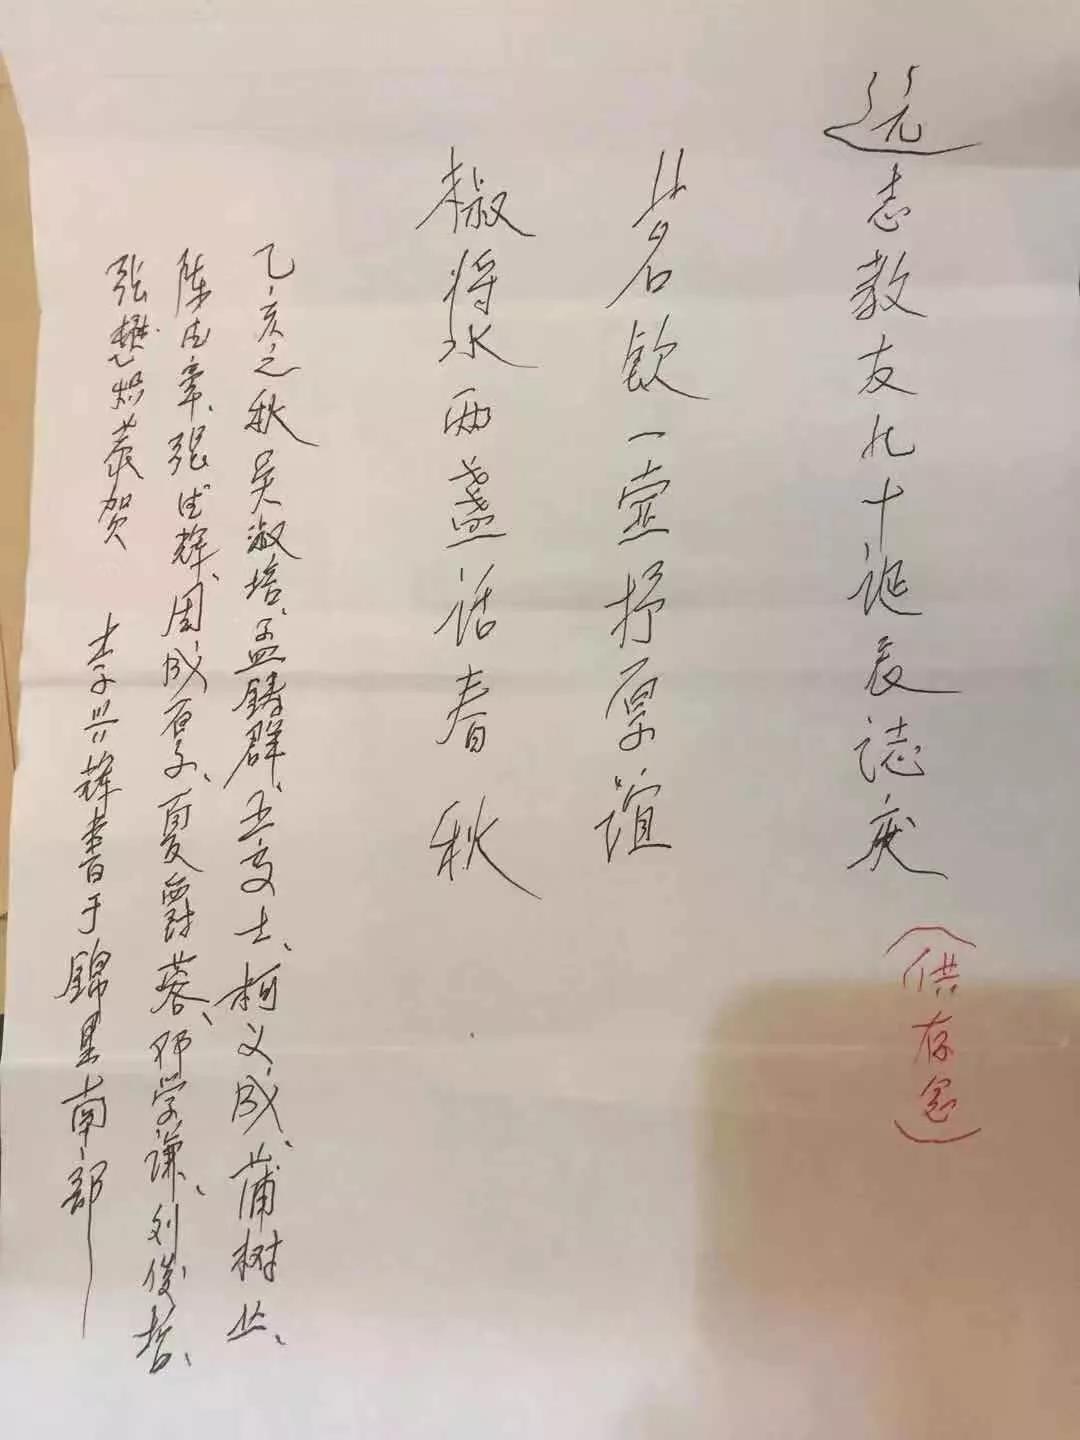 远志教友九十诞辰誌庆
(供存念)
茗飲一壶抒厚谊
椒将水两盏话春秋
乙亥之秋吴淑培、孟鑄群、王文士、柯义成、蒲树丛、
陈德章、张德辉、周成厚、夏爵蓉、邓学谦、刘俊哲、
张懋炽恭贺 李兴辉書于錦里南部